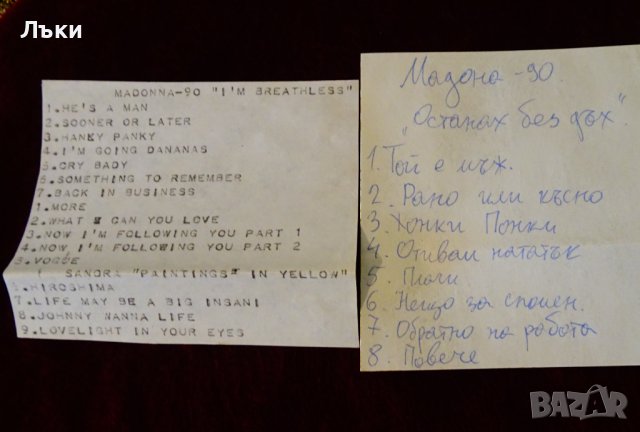 Лъки
MADONNA-90 "I'M BREATHLESS"
1.HE'S A MAN
2.SOONER OR LATER
3.HANKY PANKY
4.I'M GOING DANANAS
5.CRY BABY
6.SOMETHING TO REMEMBER
7.BACK IN BUSINESS
1.MORE
2.WHAT CAN YOU LOVE
3.NOW I'M FOLLOWING YOU PART 1
4.NOW I'M FOLLOWING YOU PART 2
5.VOGUE
SANDRA "PAINTINGS" IN YELLOW"
HIROSHIMA
7.LIFE MAY BE A BIG INSANI
8.JOHNNY WANNA LIFE
9.LOVELIGHT IN YOUR EYES
Мадона -90.
"Останах без дъх"
1. Той е мъж.
2. Рано или късно
3. Хонки Понки
4. Отивам нататък
5. Плачи
6. Нещо за спомен.
7. Обратно на работа
8. Повече
BAZAR